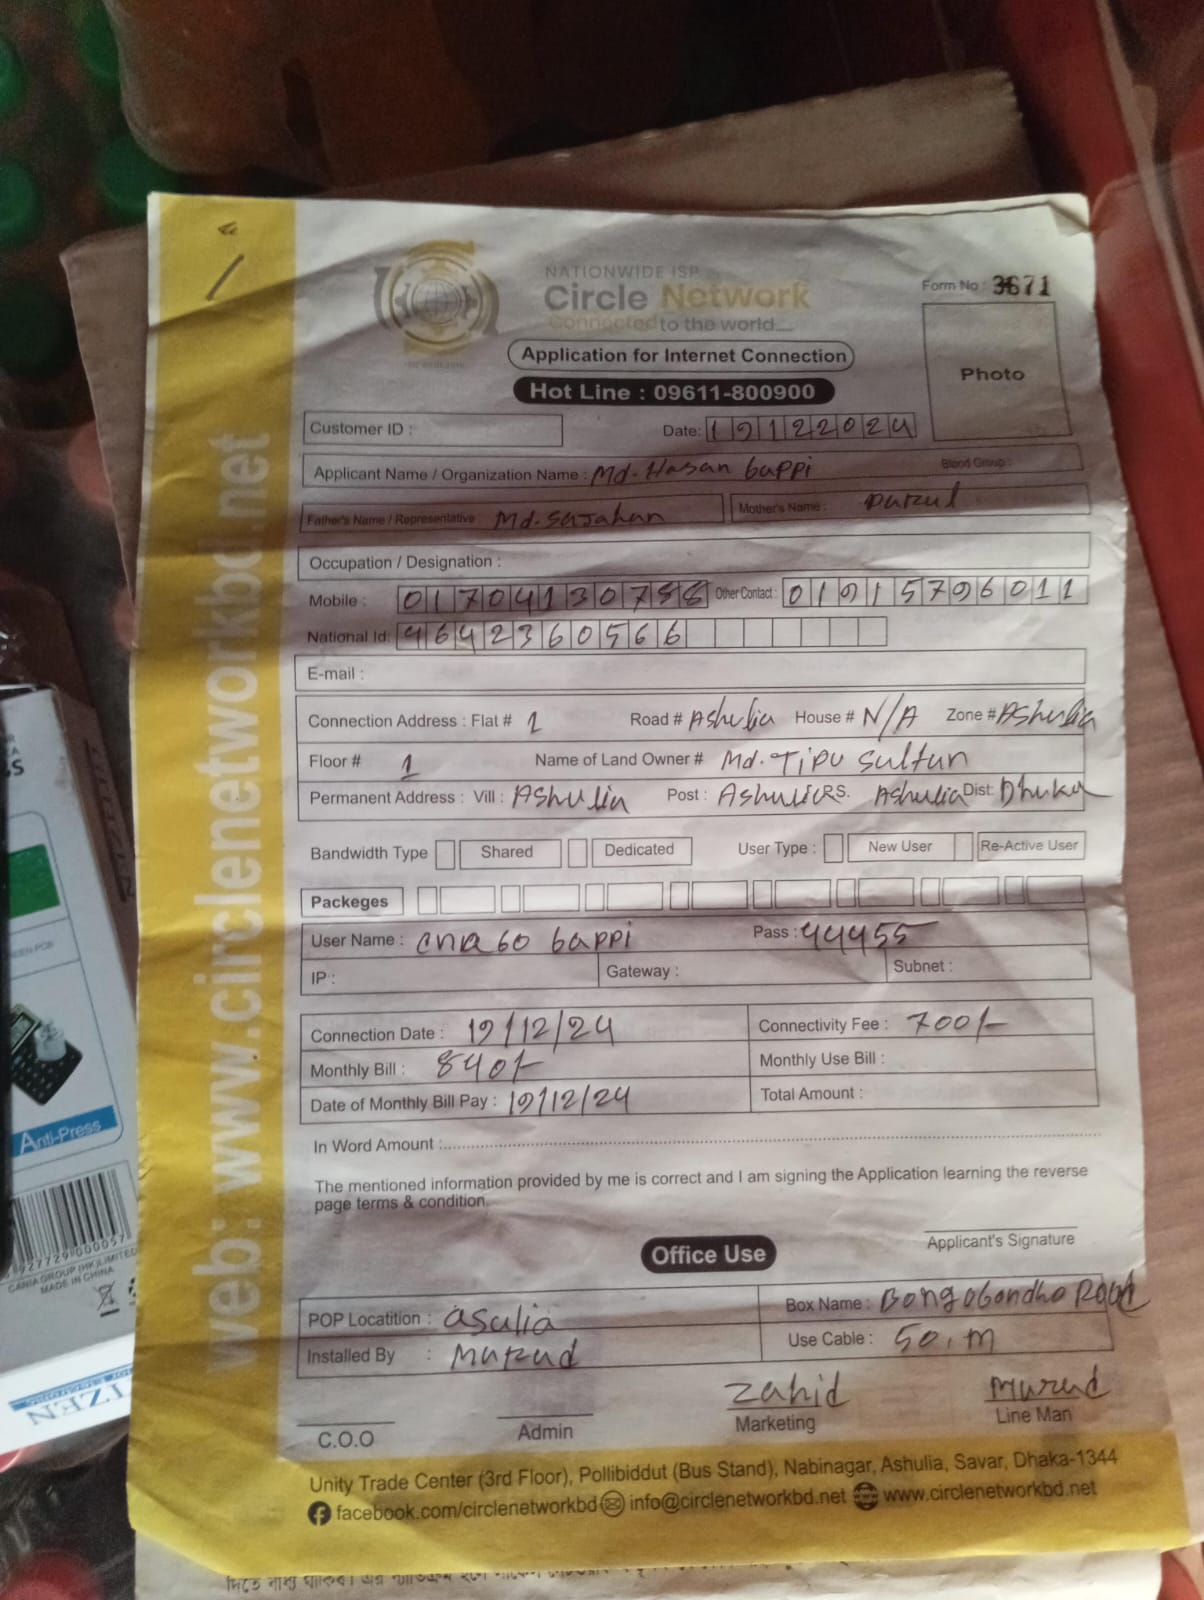 NATIONWIDE ISP
Circle Network
Connected to the world....
Form No : 3671
Photo
Application for Internet Connection
Hot Line : 09611-800900
Customer ID :
Date: 19122024
Applicant Name / Organization Name : Md. Hasan bappi Blood Group :
Father's Name / Representative Md. Sajahan Mother's Name : Parul
Occupation / Designation :
Mobile : 01704130788 Other Contact : 01915796011
National Id: 4642360566
E-mail :
Connection Address : Flat # 1 Road # Ashulia House # N/A Zone # Ashulia
Floor # 1 Name of Land Owner # Md. Tipu Sultun
Permanent Address : Vill : Ashulia Post : Ashulia P.S. Ashulia Dist: Dhaka
Bandwidth Type Shared Dedicated User Type : New User Re-Active User
Packeges
User Name : bappi Pass : 44455
IP : Gateway : Subnet :
Connection Date : 19/12/24 Connectivity Fee : 700/-
Monthly Bill : 840/- Monthly Use Bill :
Date of Monthly Bill Pay : 19/12/24 Total Amount :
In Word Amount :
The mentioned information provided by me is correct and I am signing the Application learning the reverse
page terms & condition.
Applicant's Signature
Office Use
POP Locatition : asulia Box Name : Bongobondho Road
Installed By : Murad Use Cable : 50.m
Zahid Murad
C.O.O Admin Marketing Line Man
Unity Trade Center (3rd Floor), Pollibiddut (Bus Stand), Nabinagar, Ashulia, Savar, Dhaka-1344
facebook.com/circlenetworkbd info@circlenetworkbd.net www.circlenetworkbd.net
web: www.circlenetworkbd.net
Anti-Press
CANIA GROUP (HK) LIMITED
MADE IN CHINA